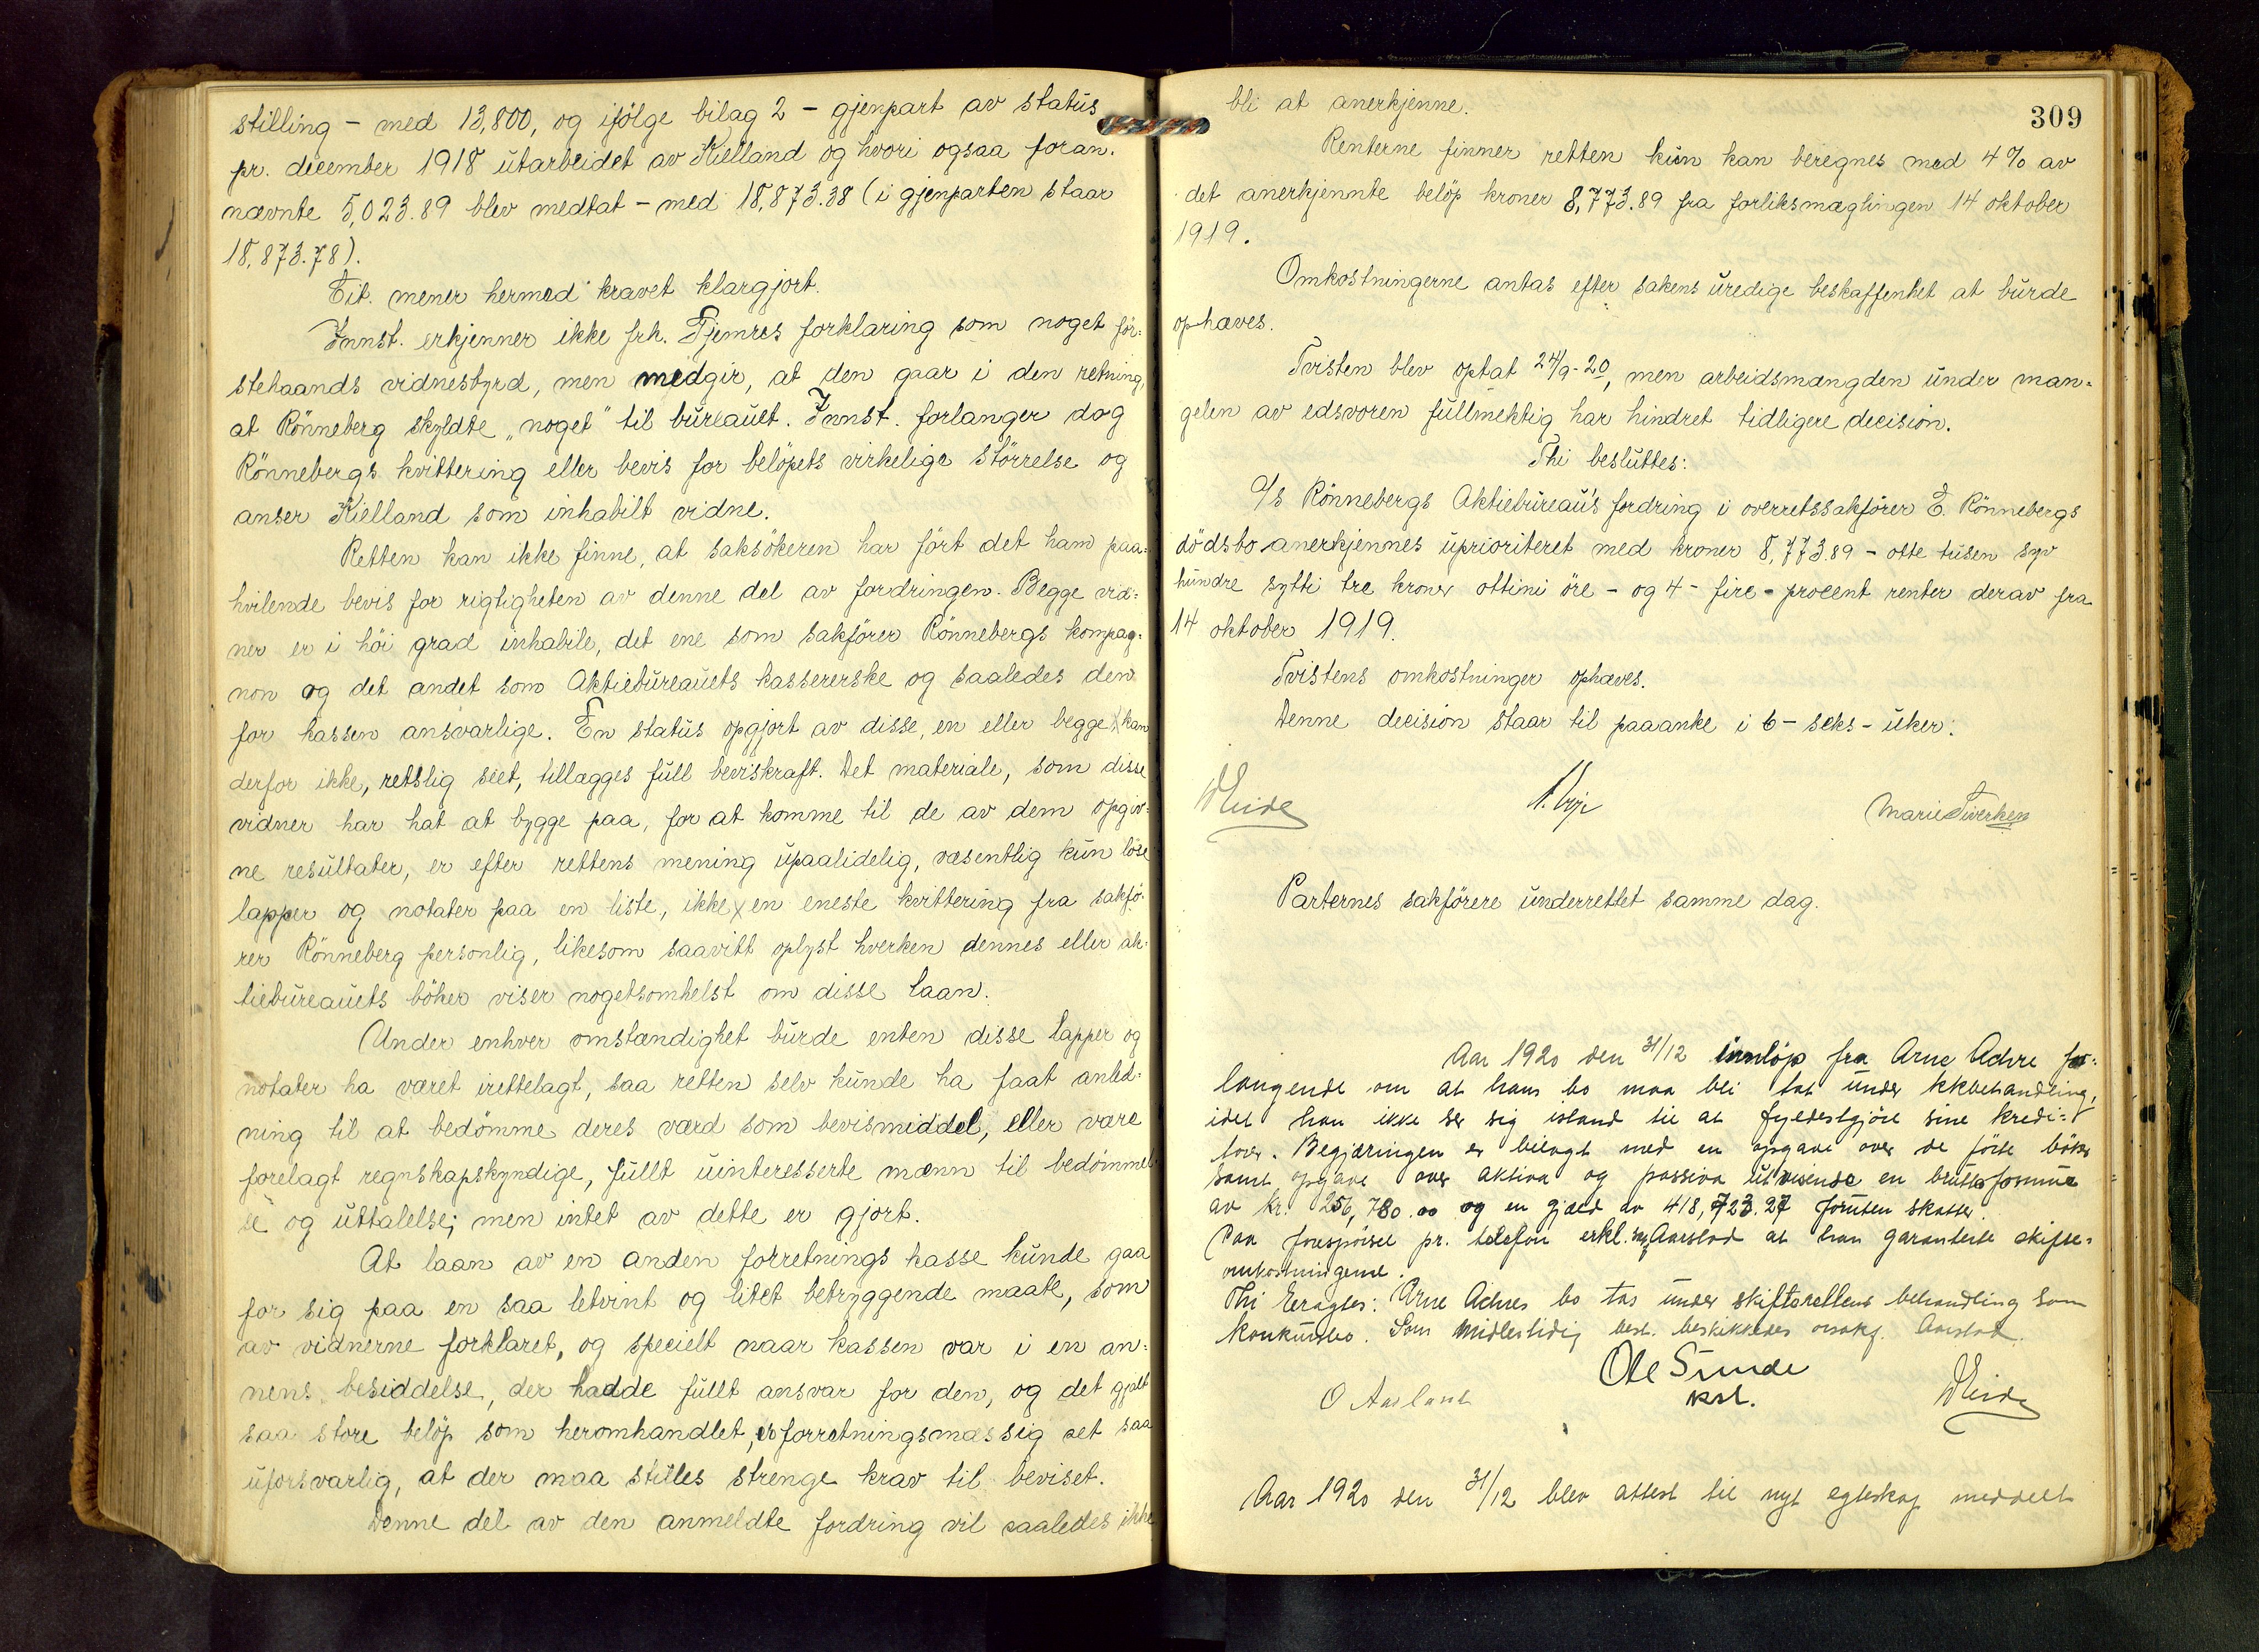 stilling – med 13,800, og ifölge bilag 2 – gjenpart av status
pr. december 1918 utarbeidet av Kielland og hvori ogsaa foran-
nævnte 5,023.89 blev medtat – med 18,873.38 (i gjenparten staar
18,873.78).
Cit. mener hermed kravet klargjort.
Innst. erkjenner ikke frk. Tjemres forklaring som noget för-
stehaands vidnesbyrd, men medgir, at den gaar i den retning,
at Rönneberg skyldte „noget" til bureauet. Innst. forlanger dog
Rönnebergs kvittering eller bevis for belöpets virkelige störrelse og
anser Kielland som inhabilt vidne.
Retten kan ikke finne, at saksökeren har fört det ham paa-
hvilende bevis for rigtigheten av denne del av fordringen. Begge vid-
ner er i höi grad inhabile, det ene som sakförer Rönnebergs kompag-
non og det andet som Aktiebureauets kassererske og saaledes den
for kassen ansvarlige. En status opgjort av disse, en eller begge, kan
derfor ikke, retslig seet, tillægges full beviskraft. Det materiale, som disse
vidner har hat at bygge paa, for at komme til de av dem opgiv-
ne resultater, er efter rettens mening upaalidelig, væsentlig kun löse
lapper og notater paa en liste, ikke en eneste kvittering fra sakfö-
rer Rönneberg personlig, likesom saavitt oplyst hverken dennes eller ak-
tiebureauets böker viser nogetsomhelst om disse laan.
Under enhver omstændighet burde enten disse lapper og
notater ha været irettelagt, saa retten selv kunde ha faat anled-
ning til at bedömme deres værd som bevismiddel, eller være
forelagt regnskapskyndige, fullt uinteresserte mænn til bedömmel-
se og uttalelse; men intet av dette er gjort.
At laan av en anden forretnings kasse kunde gaa
for sig paa en saa letvint og litet betryggende maate, som
av vidnerne forklaret, og specielt naar kassen var i en an-
nens besiddelse, der hadde fullt ansvar for den, og det gjalt
saa store belöp som heromhandlet, er forretningsmæssig set saa
uforsvarlig, at der maa stilles strenge krav til beviset.
Denne del av den anmeldte fordring vil saaledes ikke
309
bli at anerkjenne.
Renterne finner retten kun kan beregnes med 4% av
det anerkjennte belöp kroner 8,773.89 fra forliksmæglingen 14 oktober
1919.
Omkostningerne antas efter sakens uredige beskaffenhet at burde
ophæves.
Tvisten blev optat 24/9-20, men arbeidsmængden under man-
gelen av edsvoren fullmektig har hindret tidligere decision.
Thi besluttes:
A/S Rönnebergs Aktiebureau's fordring i overretssakförer E. Rönnebergs
dödsbo anerkjennes uprioritert med kroner 8,773.89 – otte tusen syv
hundre sytti tre kroner ottini öre – og 4 – fire – procent renter derav fra
14 oktober 1919.
Tvistens omkostninger ophæves.
Denne decision staar til paaanke i 6 – seks – uker.
WEide
Marie Tverken
Parternes sakförere underrettet samme dag.
Aar 1920 den 31/12 innlöp fra Arne Advre for-
langende om at hans bo maa bli tat under kkbehandling,
idet han ikke ser sig istand til at fyldestgjöre sine kredi-
torer. Begjæringen er bilagt med en opgave over de förte böker
samt opgave over aktiva og passiva utvisende en bruttoformue
av kr. 256,780.00 og en gjæld av 418,723.27 foruten skatter.
Paa forespörsel pr. telefon erkl. Aarstad at han garanterte skifte-
omkostningerne.
Thi eragtes: Arne Advres bo tas under skifterettens behandling som
konkursbo. Som midlertidig best. beskikkedes orsakf. Aarstad.
Ole Sunde
kst.
WEide
Aar 1920 den 31/12 blev attest til nyt egteskap meddelt